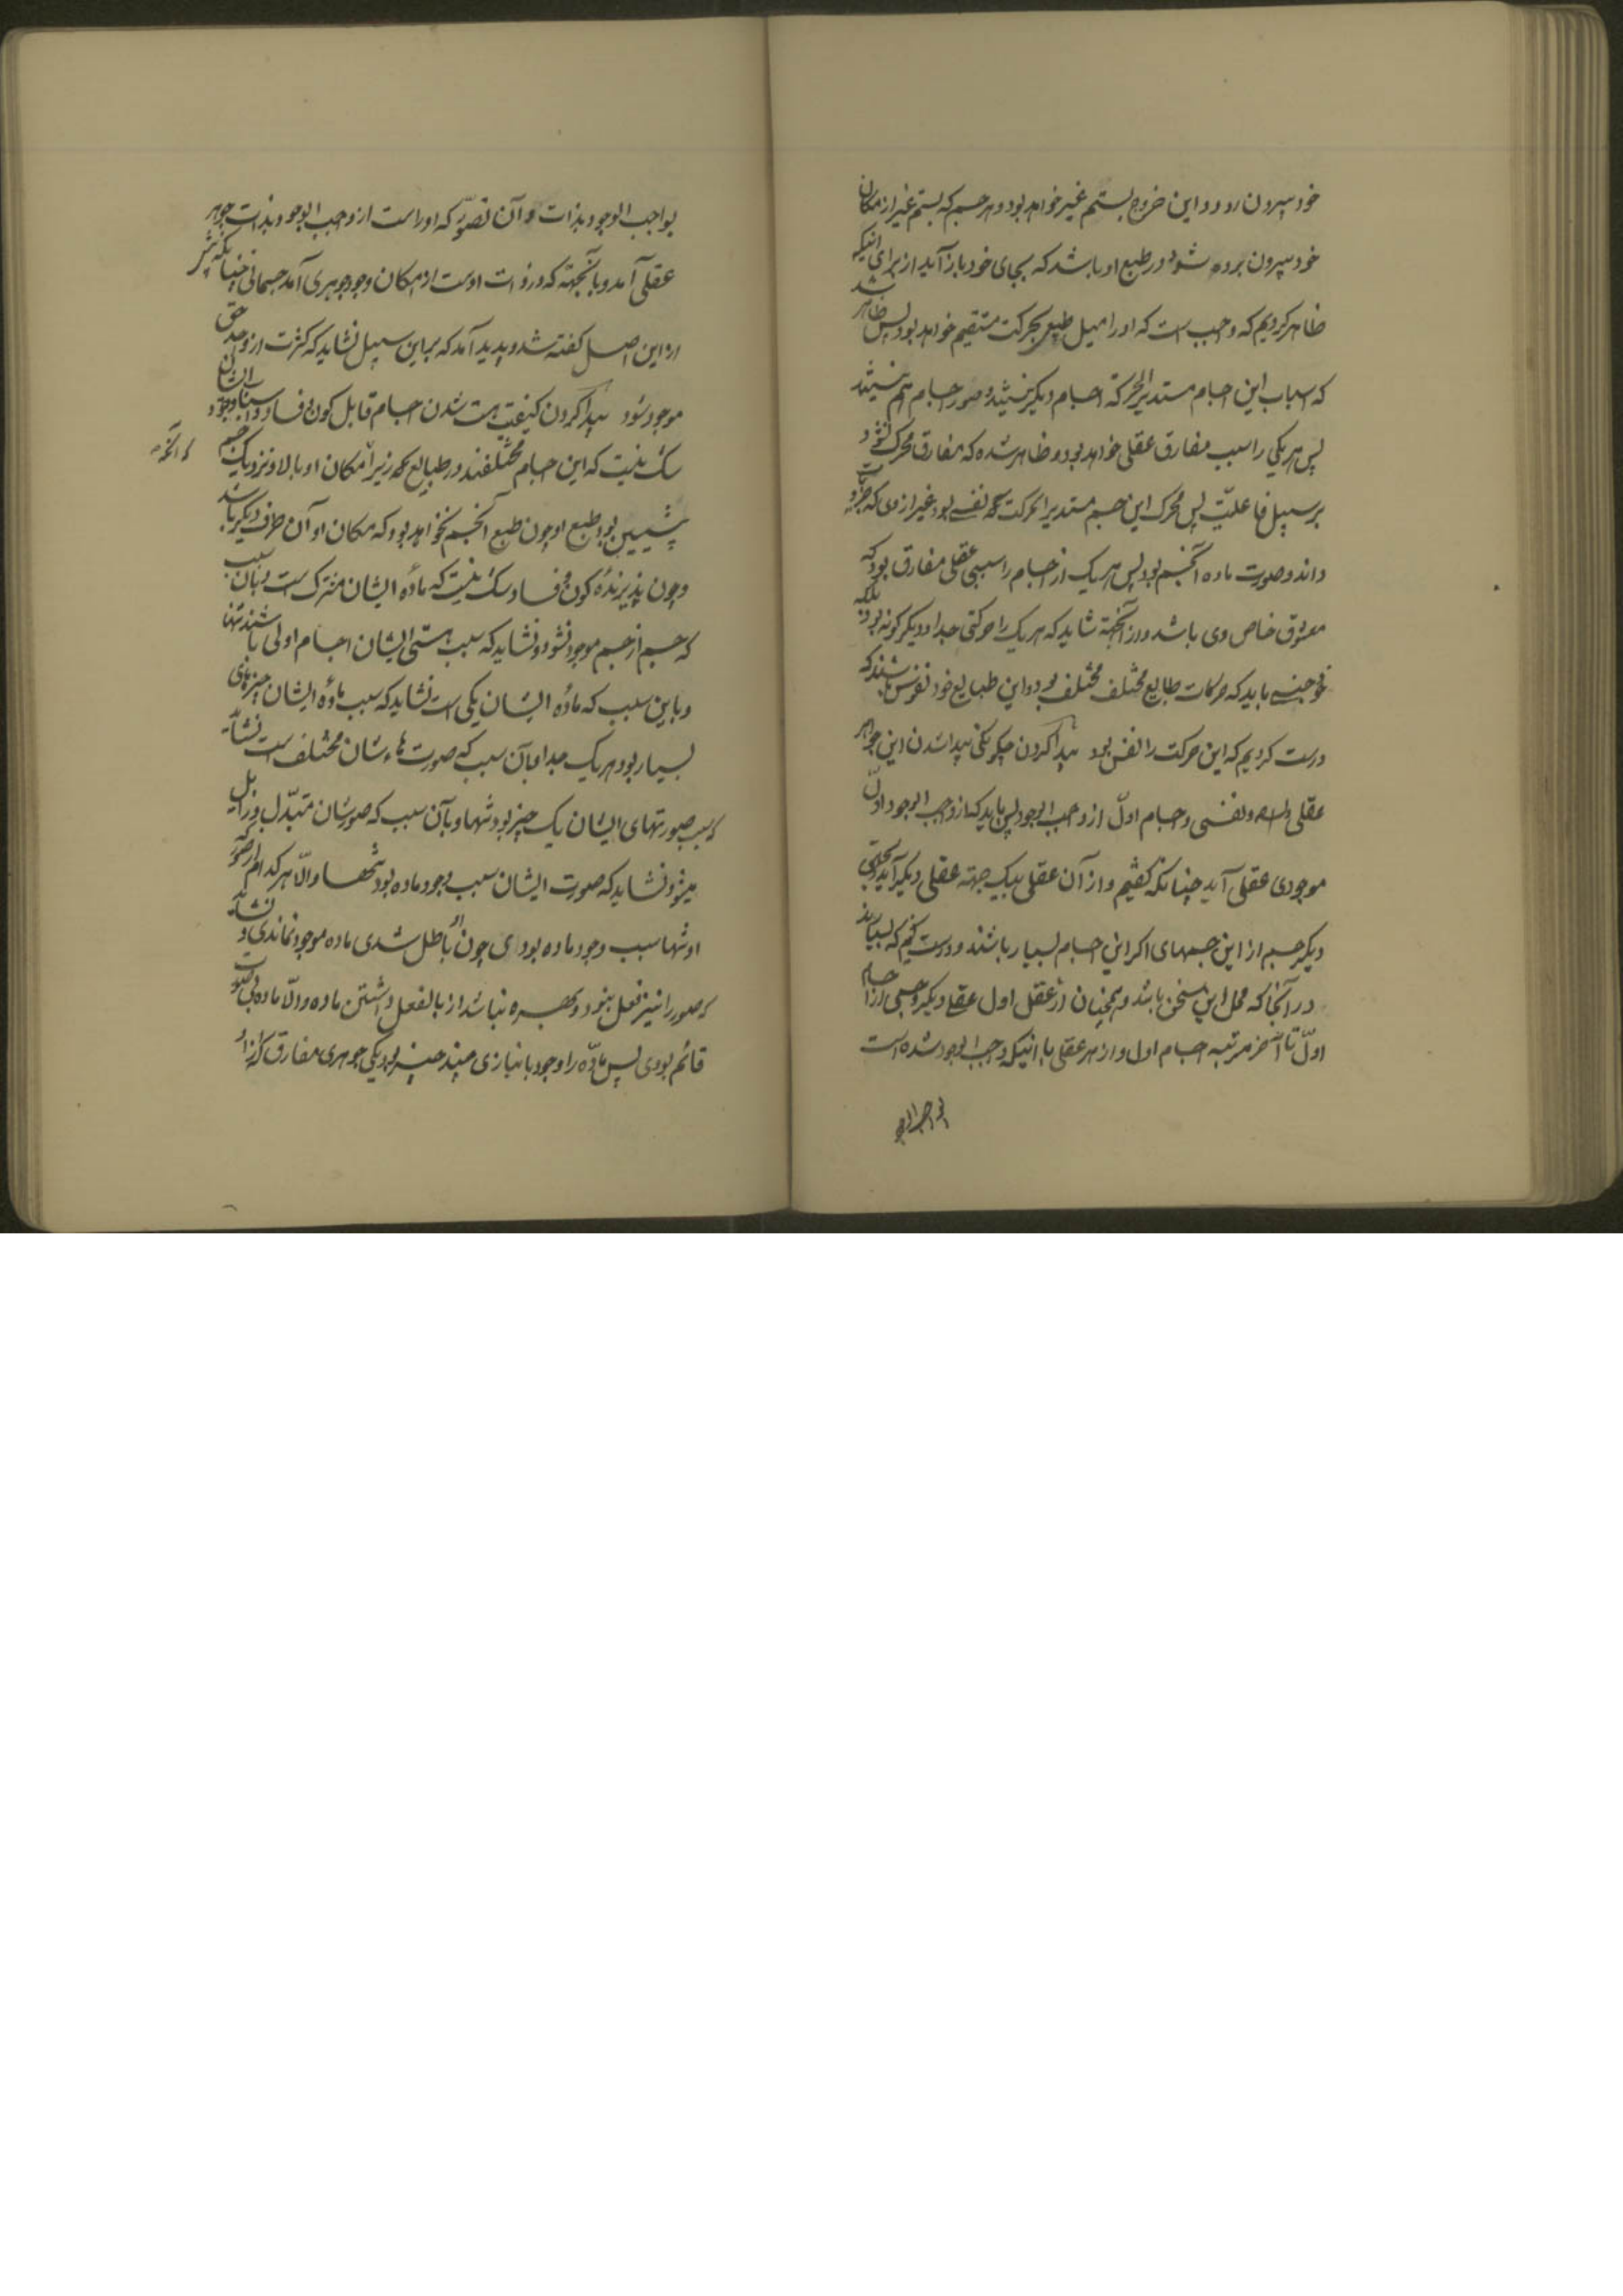 خود بیرون رود و این خروج بستم غیر خواهد بود و هر جسم که بستم غیر از مکان
خود بیرون برده شود در طبع او باشد که بجای خود باز آید از برای انیکه
ظاهر کردیم که واجب است که او را میل طبیعی بحرکت مستقیم خواهد بود پس ظاهر شد
که اسباب این اجسام مستدیر الحرکة اجسام دیگر نیشند و صور اجسام هم نیشند
پس هر یکی را سبب مفارق عقلی خواهد بود و ظاهر شده که مفارق محرک نشود
بر سبیل فاعلیّت پس محرک این جسم مستدیر الحرکت نفسی بود غیر از وی که جزویات
داند و صورت ماده آنجسم بود پس هر یک از اجسام را سببی عقلی مفارق بود که
معشوق خاص وی باشد و از آنجهة شاید که هر یک را حرکتی جدا و دیگر گونه بود بلکه
خود چنین باید که حرکات طبایع مختلف مختلف بود و این طبایع خود نفوس باشند که
درست کردیم که این حرکت را نفس بود پیدا کردن چگونگی پیدا شدن این جواهر
عقلی و نفسی و اجسام اول از واجب الوجود پس باید که از واجب الوجود اوّل
موجودی عقلی آید چنانکه گفتیم و از آن عقلی بیک جهته عقلی دیگر آید بجهتی
دیگر جسم از این جسمهای اگر این اجسام بسیار باشند و درست کنیم که بسیارند
در آنجا که محل این سخن باشد و همچنان از عقل اول عقلی دیگر و جسمی از اجسام
اوّل تا آخر مرتبه اجسام اول و از هر عقلی با انیکه واجب الوجود شده است
بواجب الوجود
بواجب الوجود بذات و آن تصوّر که او راست از واجب الوجود بذات جوهر
عقلی آمد و بآنجهته که در ذات اوست از امکان وجود جوهری آمد جسمانی چنانکه پیشتر
از این اصل گفته شد و پدید آمد که بر این سبیل نشاید که کثرت از واحد حق
موجود شود پیدا کردن کیفیت هست شدن اجسام قابل کون و فساد و اسباب وجود ایشان
شک نیست که این اجسام مختلفند در طبایع که زیرا مکان او بالا و نزدیک جسم
پیشین بود طبع او چون طبع آنجسم نخواهد بود که مکان او آن طرف دیگر باشد
که آنجسم
و چون پذیرندهٔ کون و فساد شک نیست که مادّه ایشان مشترک است و بآن سبب
که جسم از جسم موجود نشود و نشاید که سبب هستی ایشان اجسام اولی باشند تنها
و باین سبب که مادّه ایشان یکی است نشاید که سبب مادّه ایشان چیزهای
بسیار بود هر یک جدا و بآن سبب که صورت هاء شان مختلف است نشاید
که سبب صورتهای ایشان یک چیز بود تنها و بآن سبب که صورشان متبدّل و زایل
میشود نشاید که صورت ایشان سبب وجود ماده بود تنها و الّا هر کدام از صور که
او تنها سبب وجود ماده بودی چون او باطل شدی ماده موجود نماندی و نشاید
که صور را نیز فعل نبود و بهره نباشد از بالفعل داشتن ماده و الّا ماده بی صورت
قائم بودی پس مادّه را وجود بانبازی چند چیز بود یکی جوهری مفارق که از او